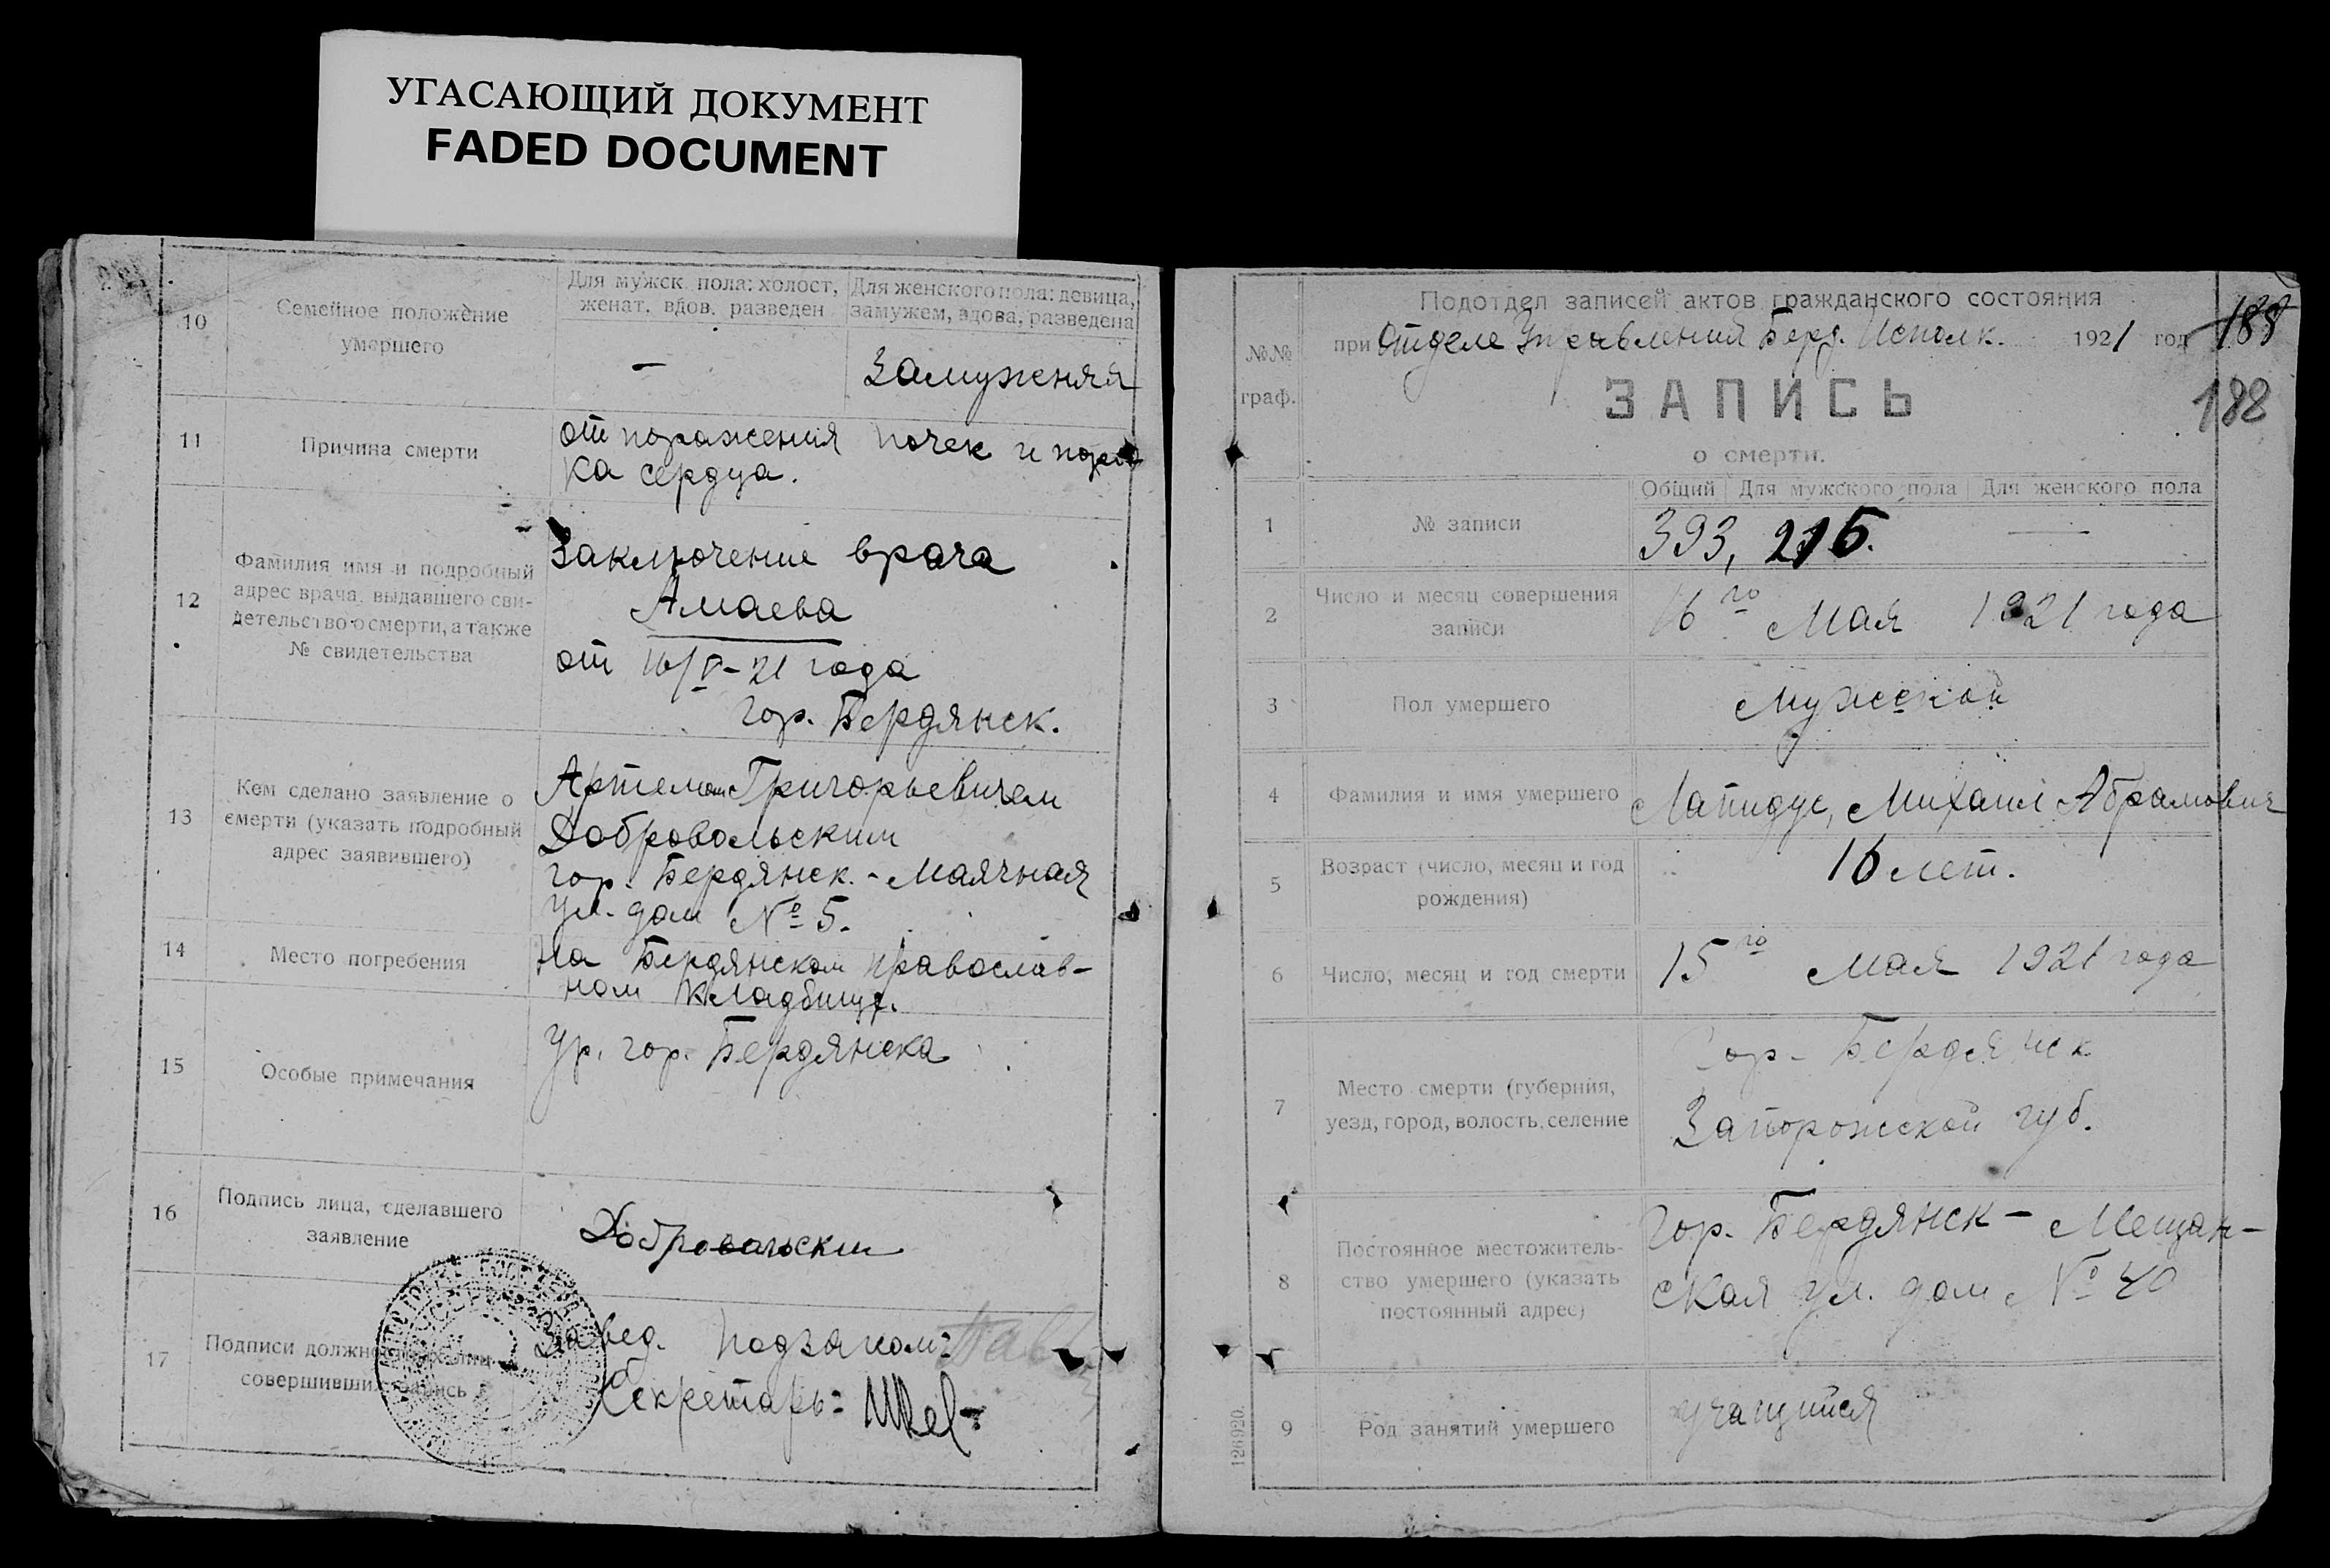 УГАСАЮЩИЙ ДОКУМЕНТ
FADED DOCUMENT
10
Семейное положение
умершего
Для мужск. пола: холост,
женат, вдов. разведен
Для женского пола: девица,
замужем, вдова, разведена
—
Замужняя
11
Причина смерти
от поражения почек и порo
ка сердца.
12
Фамилия имя и подробный
адрес врача, выдавшего сви-
детельство о смерти, а также
№ свидетельства
Заключение врача
Амаева
от 16/V-21 года
гор. Бердянск.
13
Кем сделано заявление о
смерти (указать подробный
адрес заявившего)
Артемом Григорьевичем
Добровольским
гор. Бердянск. - Маячная
ул. дом № 5.
14
Место погребения
На Бердянском православ-
ном кладбище.
15
Особые примечания
Ур. гор. Бердянска
16
Подпись лица, сделавшего
заявление
Добровольский
17
Подписи должностных лиц
совершивших запись
Завед. подзагсом:
Секретарь:
№№
граф.
Подотдел записей актов гражданского состояния
при Отделе Управления Берд. Исполк. 1921 год
188
188
ЗАПИСЬ
о смерти.
1
№ записи
Общий Для мужского пола Для женского пола
393, 216. —
2
Число и месяц совершения
записи
16го Мая 1921 года
3
Пол умершего
мужской
4
Фамилия и имя умершего
Лапидус, Михаил Абрамович
5
Возраст (число, месяц и год
рождения)
16 лет.
6
Число, месяц и год смерти
15го мая 1921 года
7
Место смерти (губерния,
уезд, город, волость, селение
Гор- Бердянск
Запорожской губ.
8
Постоянное местожитель-
ство умершего (указать
постоянный адрес)
Гор. Бердянск - Мещан-
ская ул. дом № 40
9
Род занятий умершего
учащийся
126920.